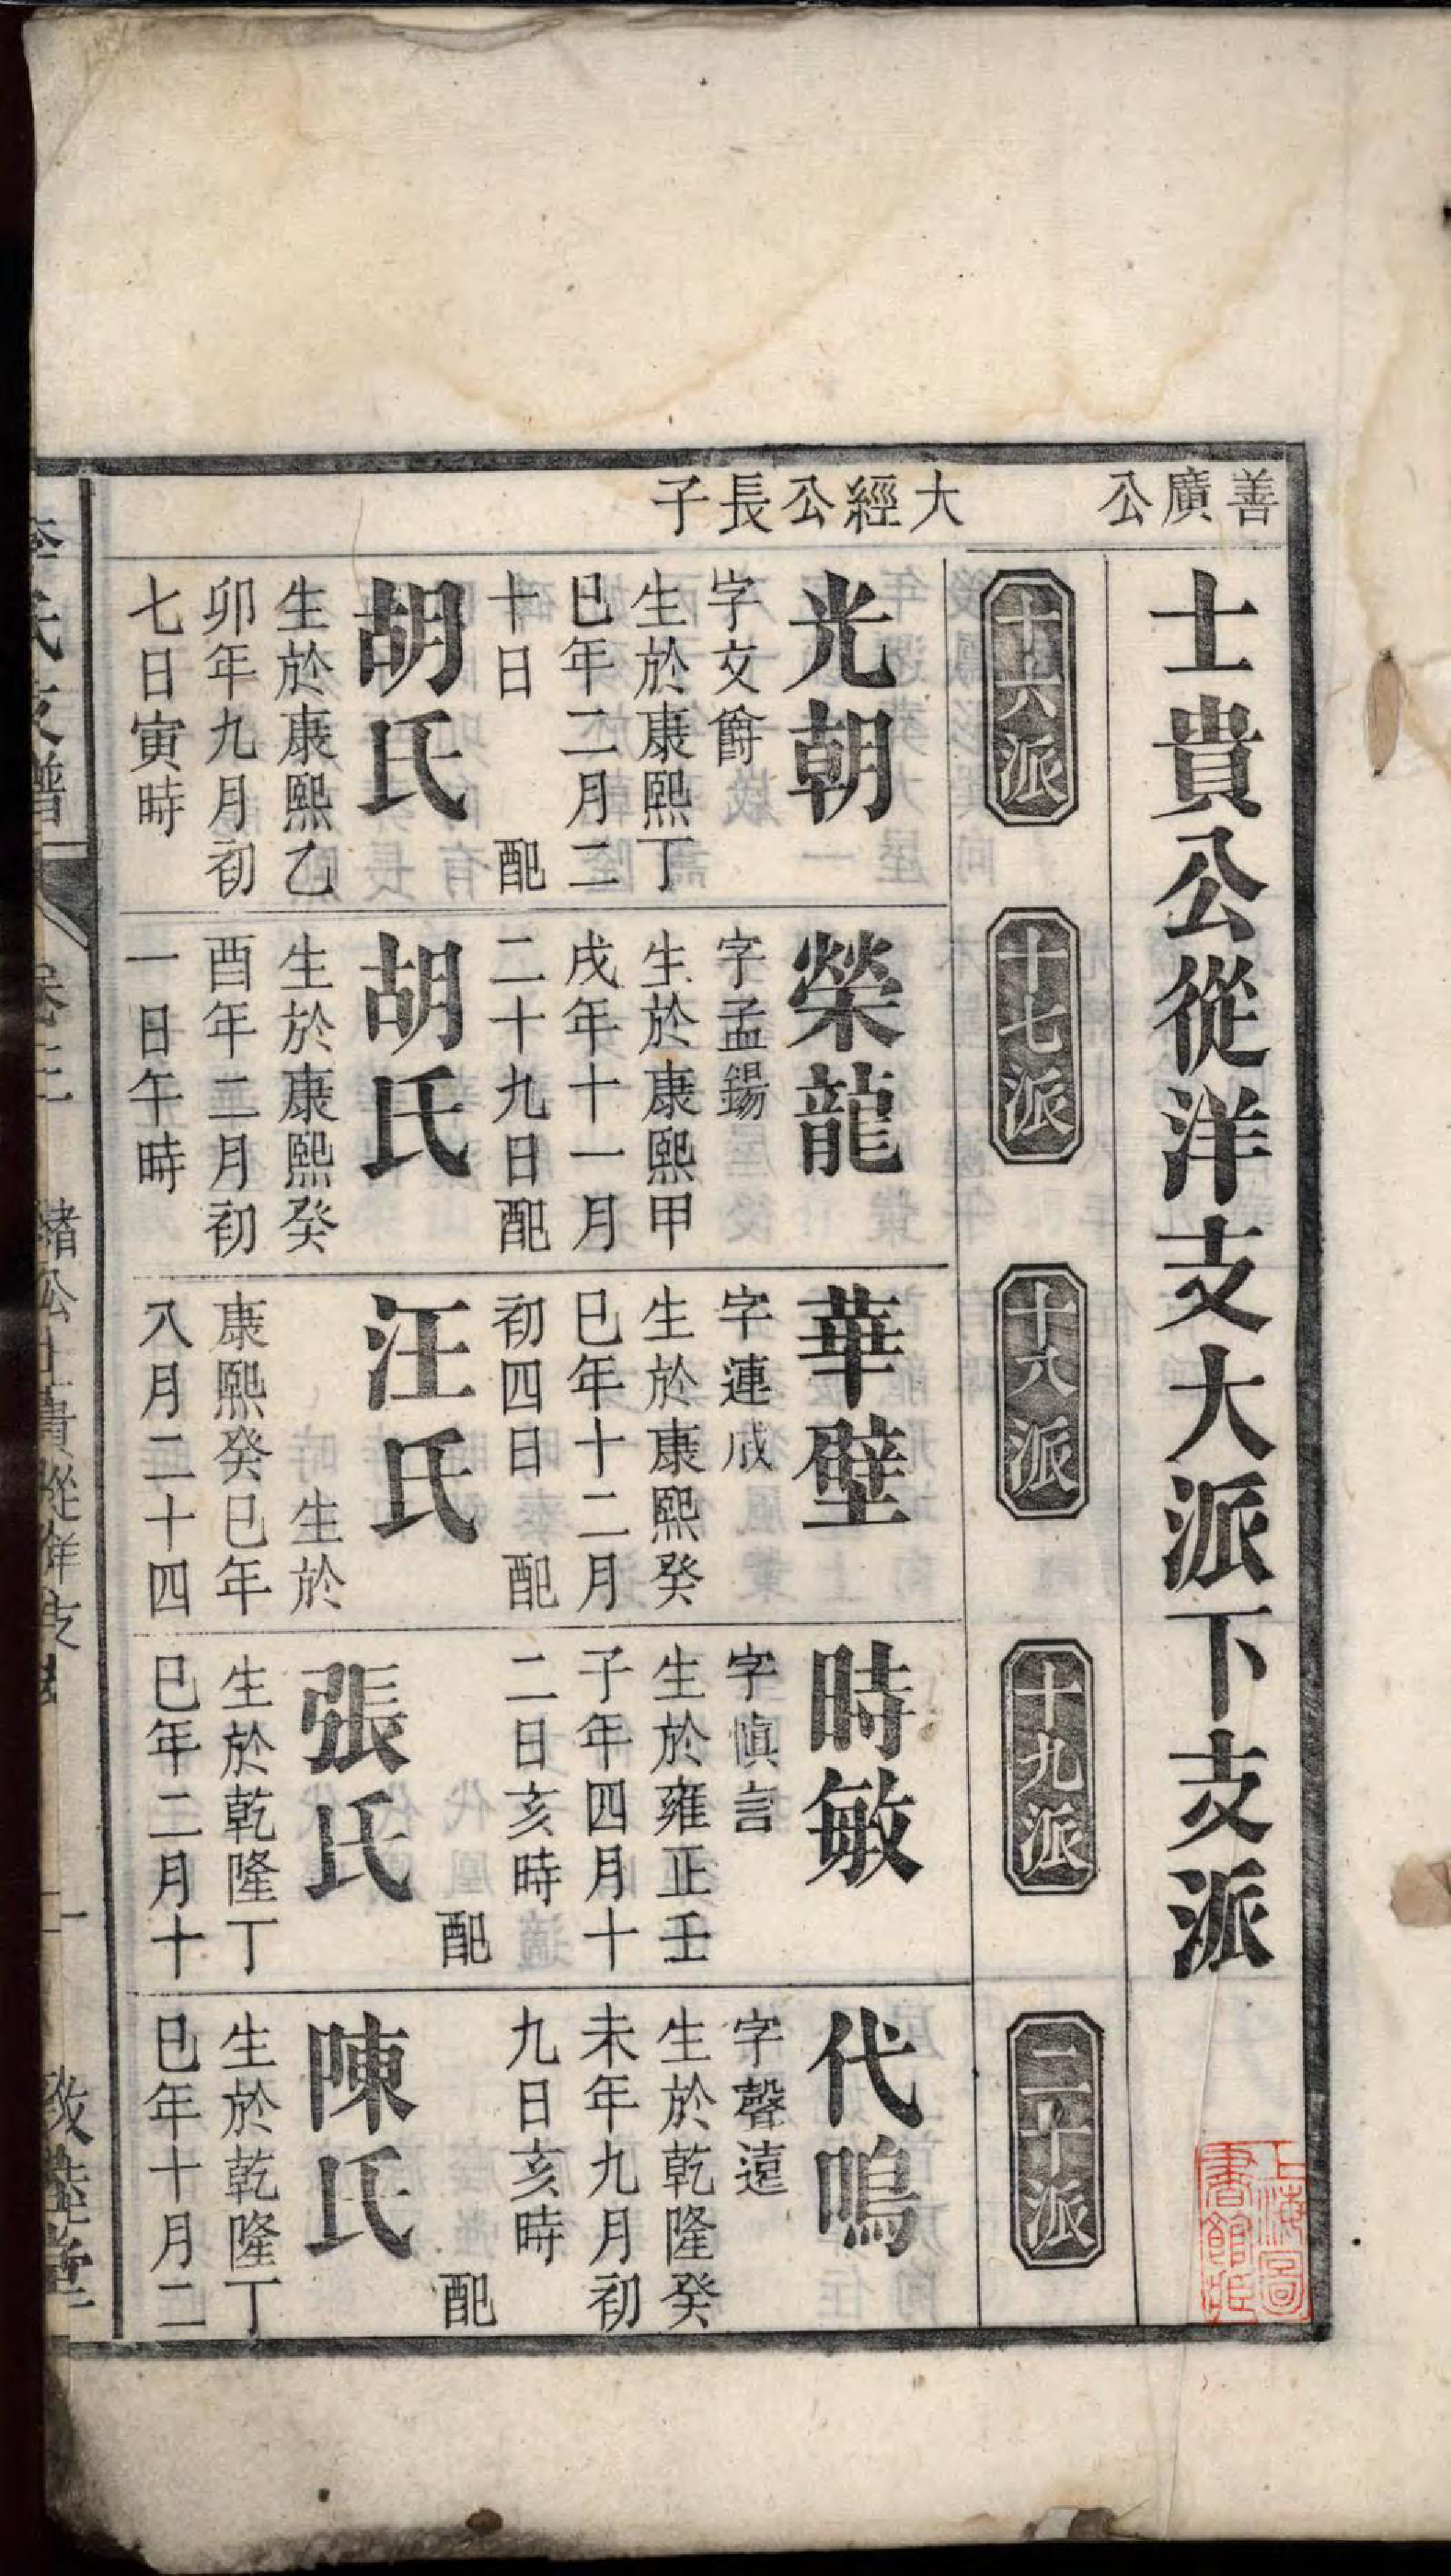 善廣公
士貴公從洋支大派下支派
大經公長子
十六派
光朝
字文爵
生於康熙丁
巳年二月二
十日　配
胡氏
生於康熙乙
卯年九月初
七日寅時
十七派
榮龍
字孟錫
生於康熙甲
戌年十一月
二十九日配
胡氏
生於康熙癸
酉年二月初
一日午時
十八派
華璧
字連成
生於康熙癸
巳年十二月
初四日　配
汪氏
生於
康熙癸巳年
八月二十四
十九派
時敏
字慎言
生於雍正壬
子年四月十
二日亥時
配
張氏
生於乾隆丁
巳年二月十
二十派
代鳴
字聲遠
生於乾隆癸
未年九月初
九日亥時
配
陳氏
生於乾隆丁
巳年十月二
緒公士貴從洋支
敦睦堂
上海圖
書館藏